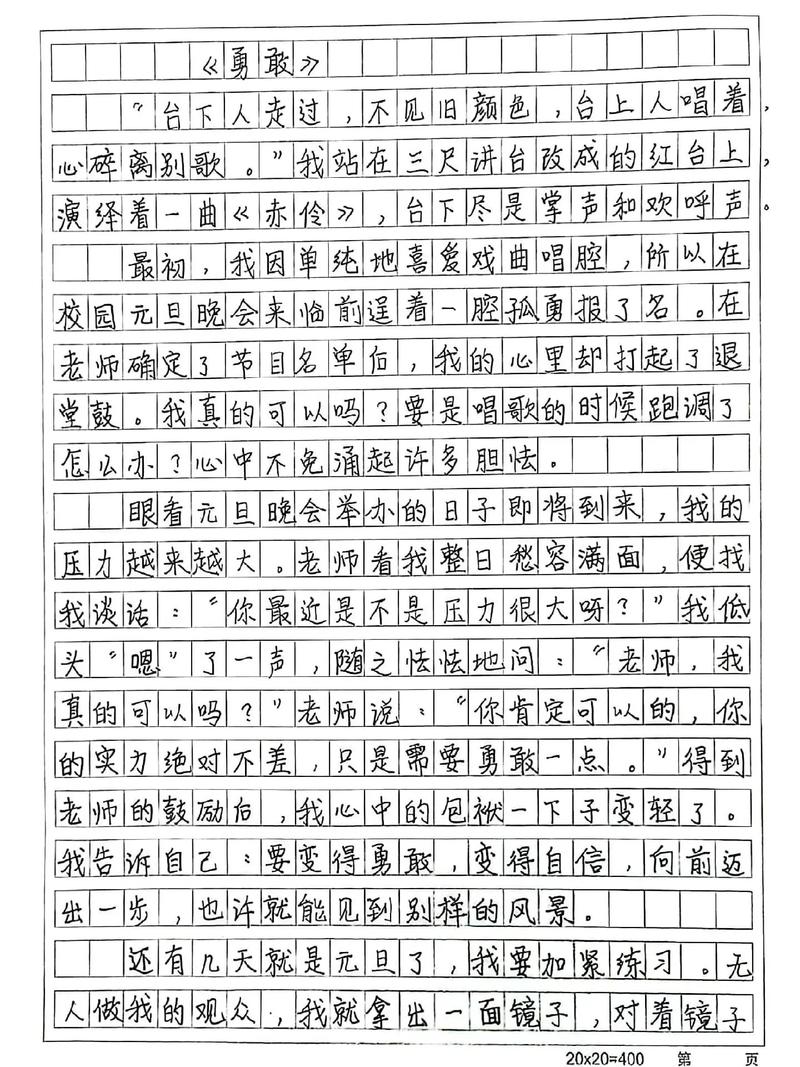 《勇敢》
“台下人走过，不见旧颜色，台上人唱着，
心碎离别歌。”我站在三尺讲台改成的红台上，
演绎着一曲《赤伶》，台下尽是掌声和欢呼声。
最初，我因单纯地喜爱戏曲唱腔，所以在
校园元旦晚会来临前逞着一腔孤勇报了名。在
老师确定了节目名单后，我的心里却打起了退
堂鼓。我真的可以吗？要是唱歌的时候跑调了
怎么办？心中不免涌起许多胆怯。
眼看元旦晚会举办的日子即将到来，我的
压力越来越大。老师看我整日愁容满面，便找
我谈话：“你最近是不是压力很大呀？”我低
头“嗯”了一声，随之怯怯地问：“老师，我
真的可以吗？”老师说：“你肯定可以的，你
的实力绝对不差，只是需要勇敢一点。”得到
老师的鼓励后，我心中的包袱一下子变轻了。
我告诉自己：要变得勇敢，变得自信，向前迈
出一步，也许就能见到别样的风景。
还有几天就是元旦了，我要加紧练习。无
人做我的观众，我就拿出一面镜子，对着镜子
20x20=400 第 页